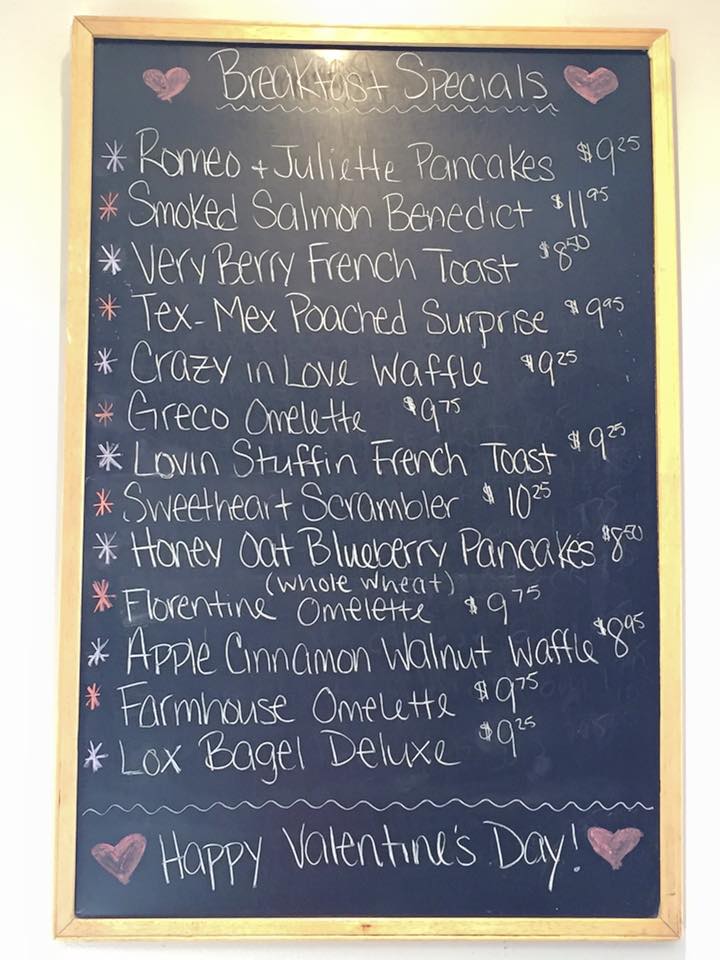 Breakfast Specials
* Romeo + Juliette Pancakes $9.25
* Smoked Salmon Benedict $11.95
* Very Berry French Toast $8.50
* Tex-Mex Poached Surprise $9.95
* Crazy in Love Waffle $9.25
* Greco Omelette $9.75
* Lovin Stuffin French Toast $9.25
* Sweetheart Scrambler $10.25
* Honey Oat Blueberry Pancakes $8.50
(whole wheat)
* Florentine Omelette $9.75
* Apple Cinnamon Walnut Waffle $8.95
* Farmhouse Omelette $9.75
* Lox Bagel Deluxe $9.25
Happy Valentine's Day!